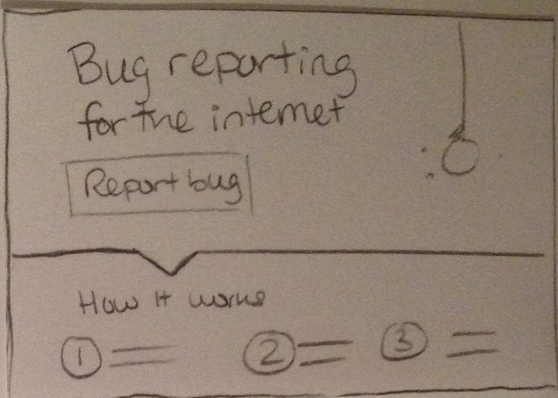 Bug reporting
for the internet
Report bug
How it works
1 2 3